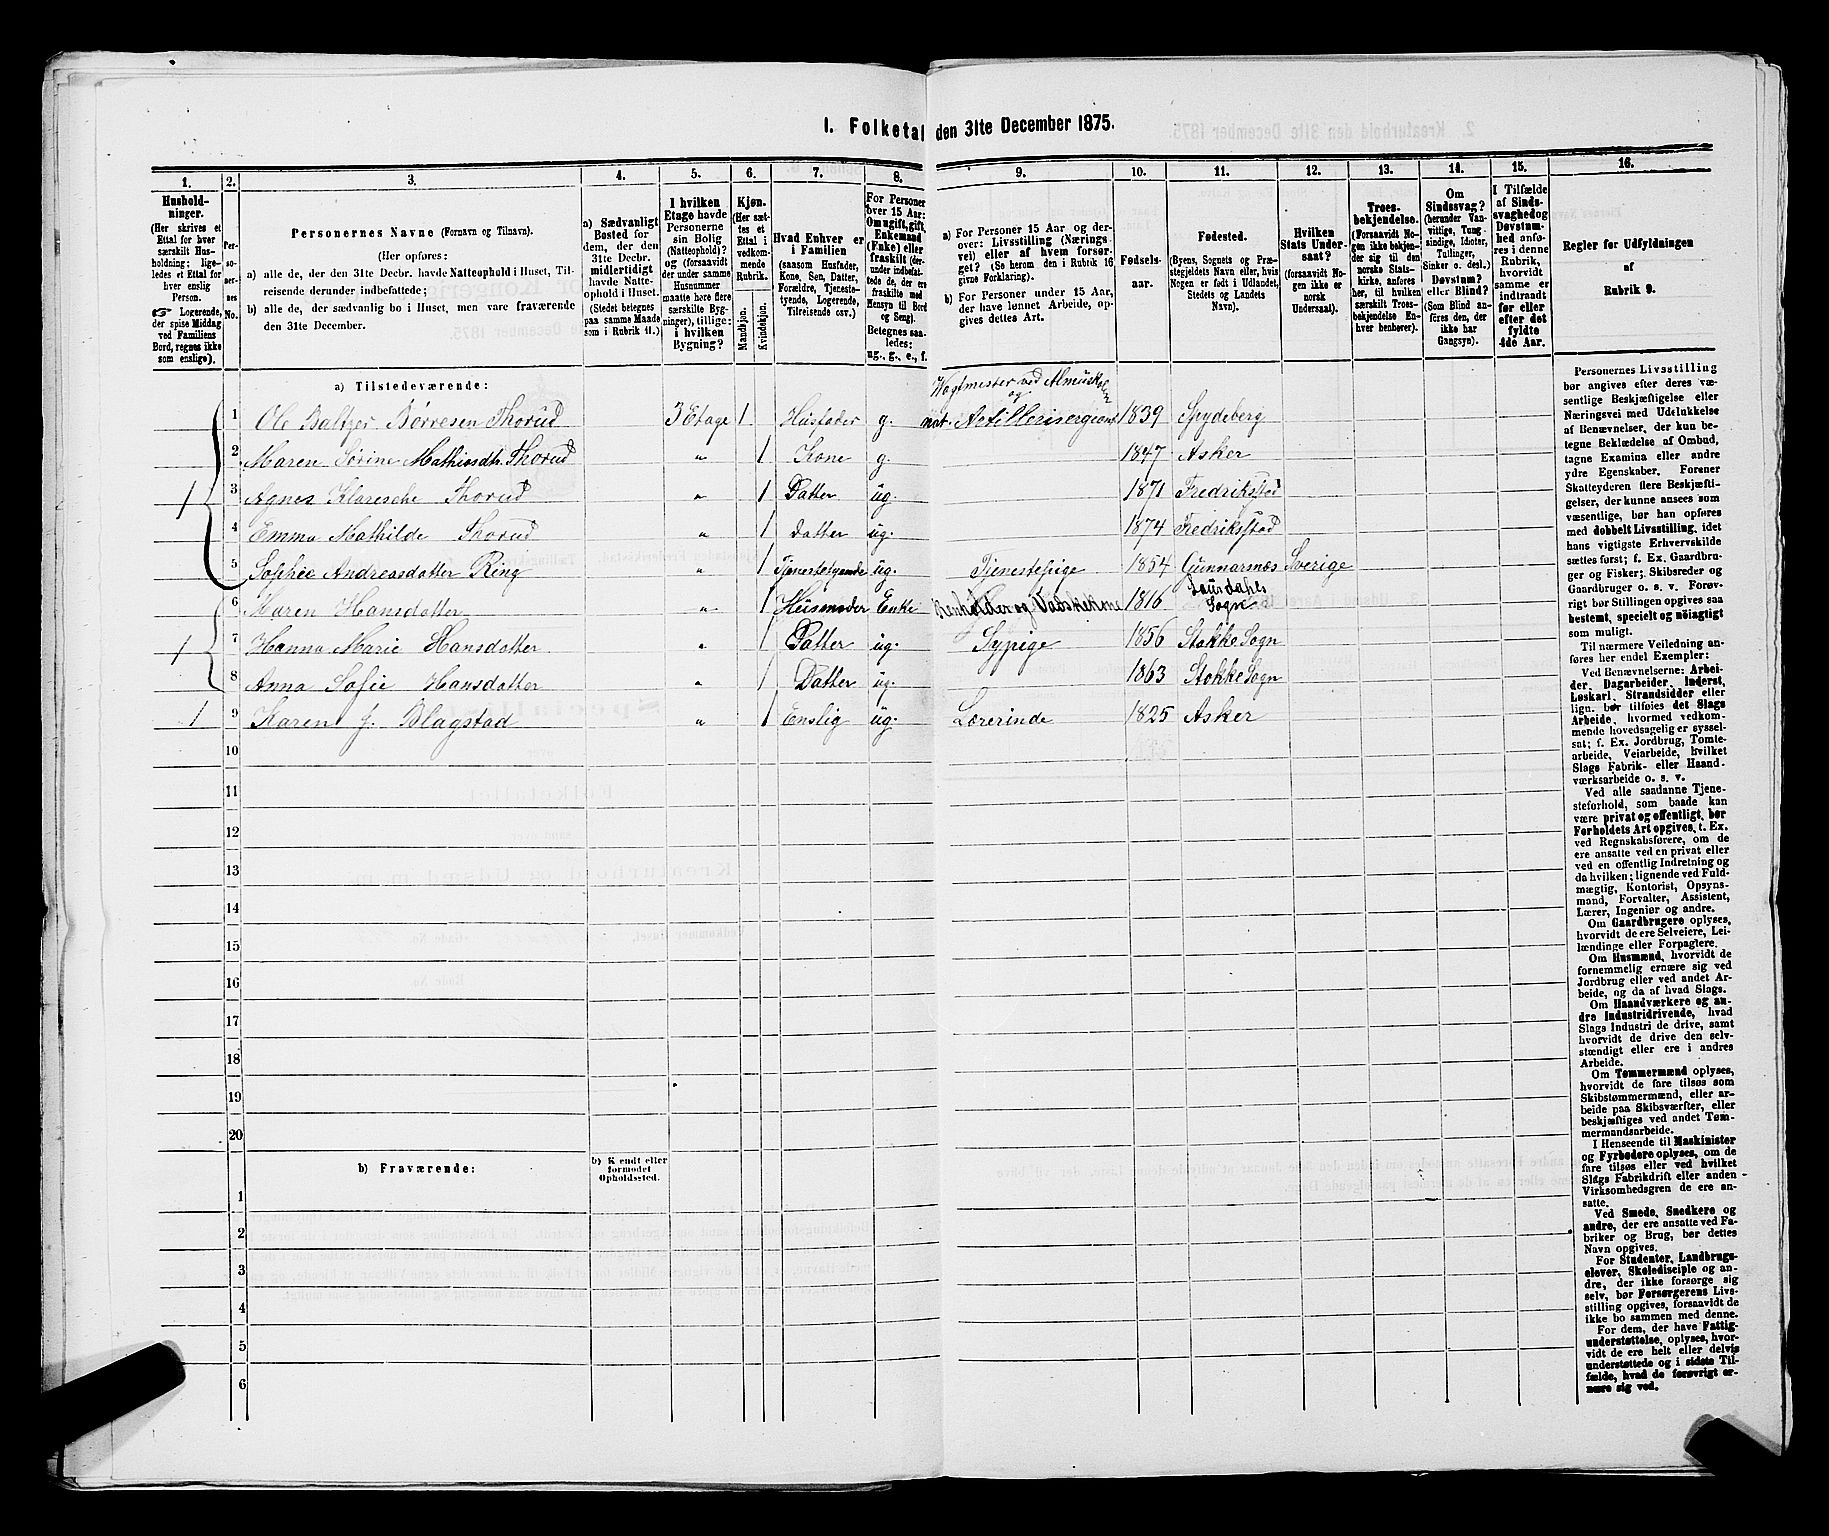 1. Folketal den 31te December 1875.
1. 2. 3. 4. 5. 6. 7. 8. 9. 10. 11. 12. 13. 14. 15. 16.
Hushold-
ninger.
(Her skrives et
Ettal for hver
særskilt Hus-
holdning; lige-
ledes et Ettal for
hver enslig
Person.
☞ Logerende,
der spise Middag
ved Familiens
Bord, regnes ikke
som enslige).
Per-
so-
ner-
nes
No.
Personernes Navne (Fornavn og Tilnavn).
(Her opføres:
a) alle de, der den 31te Decbr. havde Natteophold i Huset, Til-
reisende derunder indbefattede;
b) alle de, der sædvanlig bo i Huset, men vare fraværende
den 31te December.
a) Sædvanligt
Bosted for
dem, der den
31te Decbr.
midlertidigt
havde Natte-
ophold i Huset.
(Stedet betegnes
paa samme Maade
som i Rubrik 11.)
I hvilken
Etage havde
Personerne
sin Bolig
(Natteophold)?
og (forsaavidt
der under samme
Husnummer
maatte høre flere
særskilte Byg-
ninger), tillige:
i hvilken
Bygning?
Kjøn.
(Her sæt-
tes et
Ettal i
vedkom-
mende
Rubrik.
Mandkjøn.
Kvindekjøn.
Hvad Enhver er
i Familien
(saasom Husfader,
Kone, Søn, Datter,
Forældre, Tjeneste-
tyende, Logerende,
Tilreisende osv.)
For Personer
over 15 Aar:
Om ugift, gift,
Enkemand
(Enke) eller
fraskilt (der-
under indbefat-
tede de, der ere
fraskilte med
Hensyn til Bord
og Seng).
Betegnes saa-
ledes:
ug., g., e., f.
a) For Personer 15 Aar og der-
over: Livsstilling (Nærings-
vei) eller af hvem forsør-
get? (Se herom den i Rubrik 16
givne Forklaring).
b) For Personer under 15 Aar,
der have lønnet Arbeide, op-
gives dettes Art.
Fødsels-
aar.
Fødested.
(Byens, Sognets og Præ-
stegjeldets Navn eller, hvis
Nogen er født i Udlandet,
Stedets og Landets
Navn).
Hvilken
Stats Under-
saat?
(forsaavidt No-
gen ikke er
norsk
Undersaat).
Troes-
bekjendelse.
(Forsaavidt No-
gen ikke bekjen-
der sig til den
norske Stats-
kirke, anføres
her, til hvilken
særskilt Troes-
bekjendelse En-
hver henhører).
Om
Sindssvag?
(herunder Van-
vittige, Tung-
sindige, Idioter,
Tullinger,
Sinker o. desl.)
Døvstum?
eller Blind?
(Som Blind an-
føres den, der
ikke har
Gangsyn).
I Tilfælde
af Sinds-
svaghed og
Døvstum-
hed anfø-
res i denne
Rubrik,
hvorvidt
samme er
indtraadt
før eller
efter det
fyldte
4de Aar.
Regler for Udfyldningen
af
Rubrik 9.
a) Tilstedeværende:
Vagtmester ved Almueskolen
og
1 Ole Baltzer Børresen Thorud 3 Etage 1 Husfader g. nat. Artillerisergeant 1839 Spydeberg
2 Maren Sørine Mathisdtr. Thorud " 1 Kone g. 1847 Asker
1 3 Agnes Klaresche Thorud " 1 Datter ug. 1871 Fredrikstad
4 Emma Mathilde Thorud " 1 Datter ug. 1874 Fredrikstad
5 Sophie Andreasdatter Ring " 1 Tjenestetyende ug. Tjenestepige 1854 Gunnarsnæs Sverige
6 Maren Hansdatter " 1 Husmoder Enke Renholder og Vadskekone 1816 Laurdahls Sogn
1 7 Hanna Marie Hansdatter " 1 Datter ug. Sypige 1856 Stokke Sogn
8 Anna Sofie Hansdatter " 1 Datter ug. 1863 Stokke Sogn
1 9 Karen J. Blagstad " 1 Enslig ug. Lærerinde 1825 Asker
10
11
12
13
14
15
16
17
18
19
20
b) Fraværende:
b) Kjendt eller
formodet
Opholdssted.
1
2
3
4
5
6
Personernes Livsstilling
bør angives efter deres væ-
sentlige Beskjæftigelse eller
Næringsvei med Udelukkelse
af Benævnelser, der kun be-
tegne Beklædelse af Ombud,
tagne Examina eller andre
ydre Egenskaber. Forener
Skatteyderen flere Beskjæfti-
gelser, der kunne ansees som
væsentlige, bør han opføres
med dobbelt Livsstilling, idet
hans vigtigste Erhvervskilde
sættes først; f. Ex. Gaardbru-
ger og Fisker; Skibsreder og
Gaardbruger o. s. v. Forøv-
rigt bør Stillingen opgives saa
bestemt, specielt og nøiagtigt
som muligt.
Til nærmere Veiledning an-
føres her endel Exempler:
Ved Benævnelserne: Arbei-
der, Dagarbeider, Inderst,
Løskarl, Strandsidder eller
lign. bør tilføies det Slags
Arbeide, hvormed vedkom-
mende hovedsagelig er syssel-
sat; f. Ex. Jordbrug, Tomte-
arbeide, Veiarbeide, hvilket
Slags Fabrik- eller Haand-
værksarbeide o. s. v.
Ved alle saadanne Tjene-
steforhold, som baade kan
være privat og offentligt, bør
Forholdets Art opgives, t. Ex.
ved Regnskabsførere, om de
ere ansatte ved en privat eller
ved en offentlig Indretning og
da hvilken; lignende ved Fuld-
mægtig, Kontorist, Opsyns-
mand, Forvalter, Assistent,
Lærer, Ingeniør og andre.
Om Gaardbrugere oplyses,
hvorvidt de ere Selveiere, Lei-
lændinge eller Forpagtere.
Om Husmænd, hvorvidt de
fornemmelig ernære sig ved
Jordbrug eller ved andet Ar-
beide, og da af hvad Slags.
Om Haandværkere og an-
dre Industridrivende, hvad
Slags Industri de drive, samt
hvorvidt de drive den selv-
stændigt eller ere i andres
Arbeide.
Om Tømmermænd oplyses,
hvorvidt de fare tilsøs som
Skibstømmermænd, eller ar-
beide paa Skibsværfter, eller
beskjæftiges ved andet Tøm-
mermandsarbeide.
I Henseende til Maskinister
og Fyrbødere oplyses, om de
fare tilsøs eller ved hvilket
Slags Fabrikdrift eller anden
Virksomhedsgren de ere an-
satte.
Ved Smede, Snedkere og
andre, der ere ansatte ved Fa-
briker og Brug, bør dettes
Navn opgives.
For Studenter, Landbrugs-
elever, Skoledisciple og an-
dre, der ikke forsørge sig
selv, bør Forsørgerens Livs-
stilling opgives, forsaavidt de
ikke bo sammen med denne.
For dem, der have Fattig-
understøttelse, oplyses, hvor-
vidt de ere helt eller delvis
understøttede og i sidste Til-
fælde, hvad de forøvrigt er-
nære sig ved.